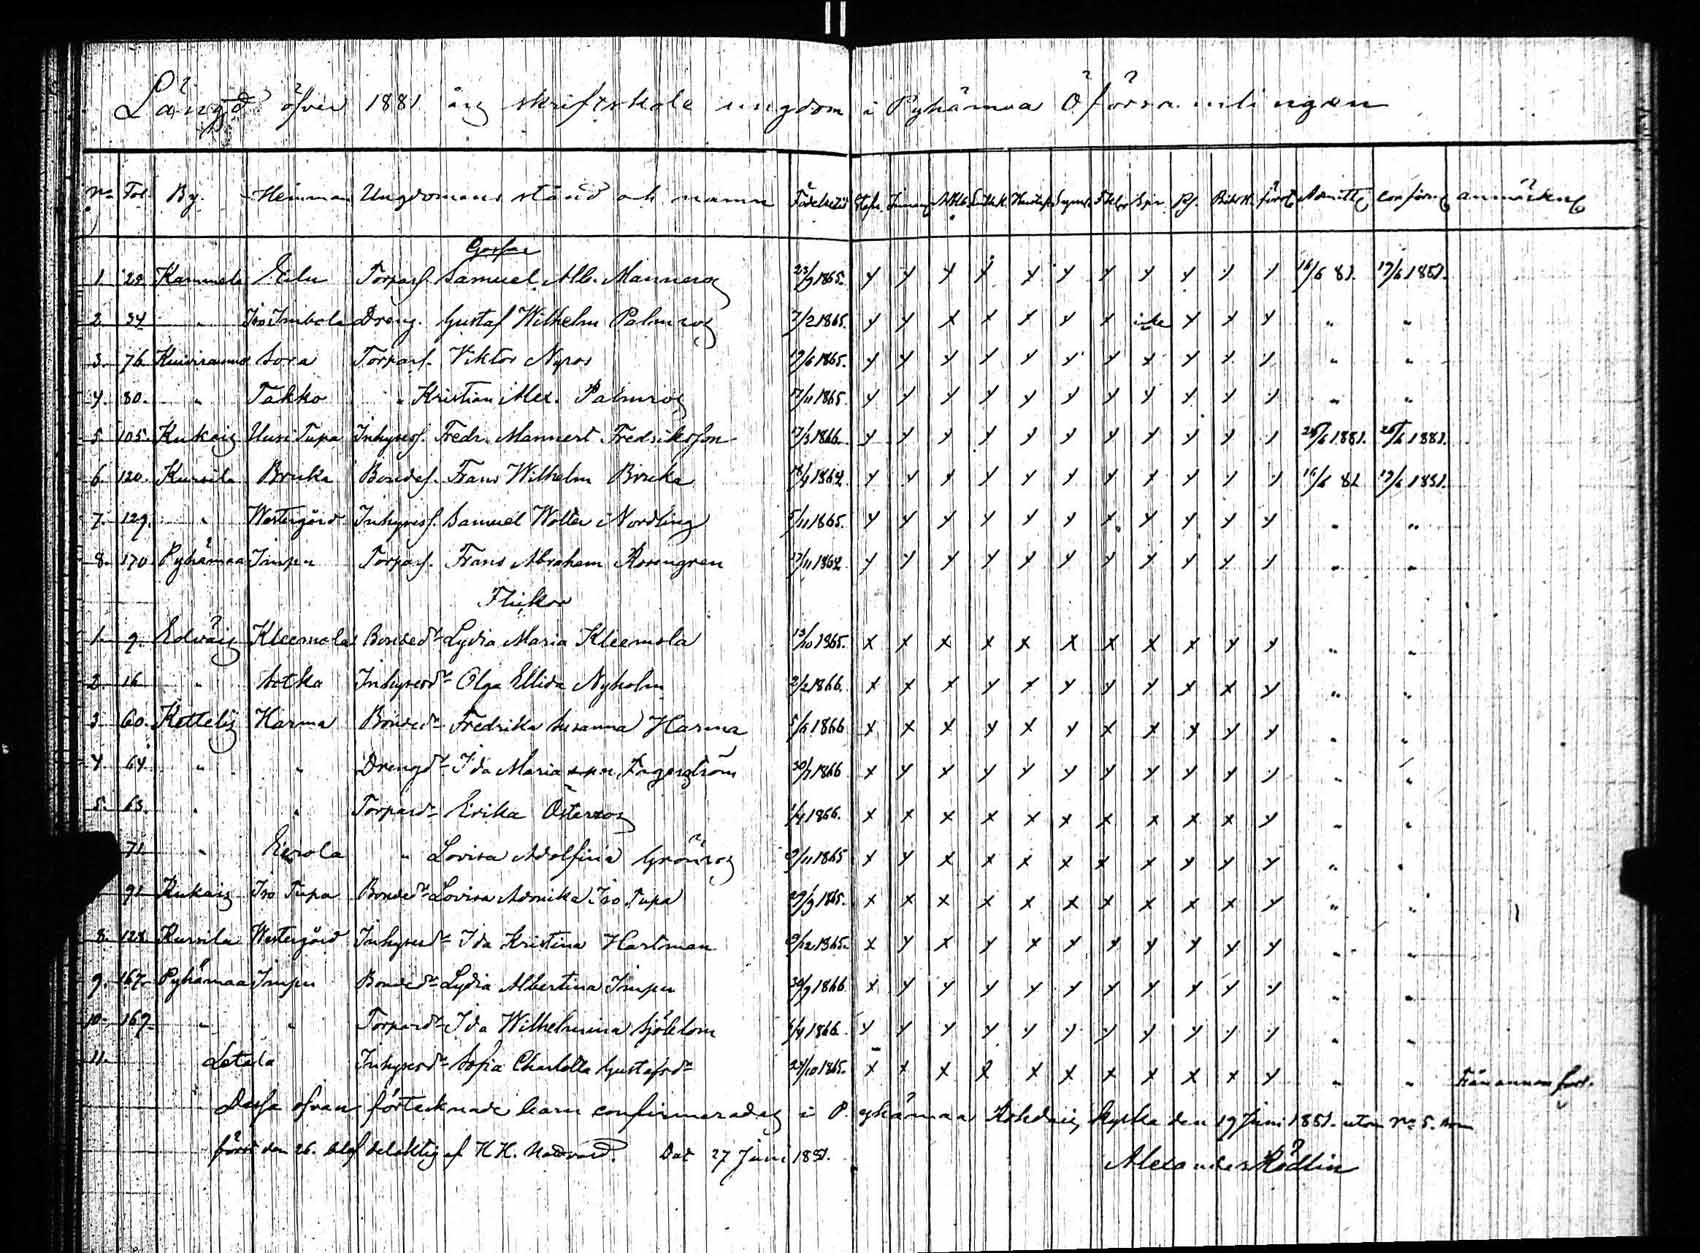 Längd öfver 1881 års skriftskole ungdom i Pyhämaa Ö församlingen
No Fol. By. Hemman Ungdomens stånd och namn Födelsetid Admitt. Confirm. anmärkn.
Gossar
1. 20. Kammela Eelu Torpars. Samuel Alb. Manneros 23/9 1865. y y y y y y y y y y y 16/6 81. 19/6 1881.
2. 34 " Iso Imbola Dreng. Gustaf Wilhelm Palmros 7/2 1865. y y x x x y x icke y x y " "
3. 76 Kuivirauma Sora Torpars. Viktor Nyros 19/6 1865. y y y y y y y x y y y " "
4. 80. " Takko " Kristian Alex. Palmros 17/11 1865. y y y y y y y y y y y " "
5. 105. Kukais Uusi Tupa Inhyses. Fredr. Mannert Fredriksson 17/3 1866. y y y y y y y y y y y 26/6 1881. 26/6 1881.
6. 120. Kursila Bruka Bondes. Frans Wilhelm Bruka 18/4 1864. y y y y y y y y y y y 16/6 81 19/6 1881.
7. 129. " Westergård Inhyses. Samuel Wolter Nordling 5/11 1865. y y y y y y x y y y y " "
8. 170 Pyhämaa Impu Torpars. Frans Abraham Rosengren 13/11 1864. y y y y y y y y y y y " "
Flickor
1. 9. Edväis Kleemola Bonded:r Lydia Maria Kleemola 13/10 1865. x x x x x x x x x y y " "
2. 16 " Sotka Inhysesd:r Olga Ellida Nyholm 2/2 1866. x x x y x y y y x x y " "
3. 60. Ketteli Harma Bonded:r Fredrika Susanna Harma 5/6 1866 x x x y x y x x y y y " "
4 64. " " Drengd:r Ida Maria Fagerström 30/3 1866 x y x y y y y y y y y " "
5. 63. " " Torpard:r Erika Österros 1/4 1866. x x x x x x x x x x y " "
71. " Eerola " Lovisa Adolfina Grönros 9/11 1865 x y x x x x x x y y y " "
91 Kukais Iso Tupa Bonded:r Lovisa Admika Iso Tupa 29/9 1865. x x x x x x x x x x y " "
8. 128. Kursila Westergård Inhysesd:r Ida Kristina Hartman 9/12 1865. x y x y x y y y y y y " "
9. 167. Pyhämaa Impu Bonded:r Lydia Albertina Impu 30/9 1866 x y y y y y y y y y y " "
10. 167. " " Torpard:r Ida Wilhelmina Sjöblom 4/4 1866. y y y y y y y y y y y " "
11. Letala Inhysesd:r Sofia Charlotta Gustafsd:r 24/10 1865. x x x x x x x x x x y " " Från annan förs.
Dessa ofvan förtecknade barn confirmerades i Pyhämaa kyrka den 19 Juni 1881. utom No 5. som
först den 26. blef delaktig af H. H. Nattvard. Dat 27 Juni 1881.
Alexander Rödlin